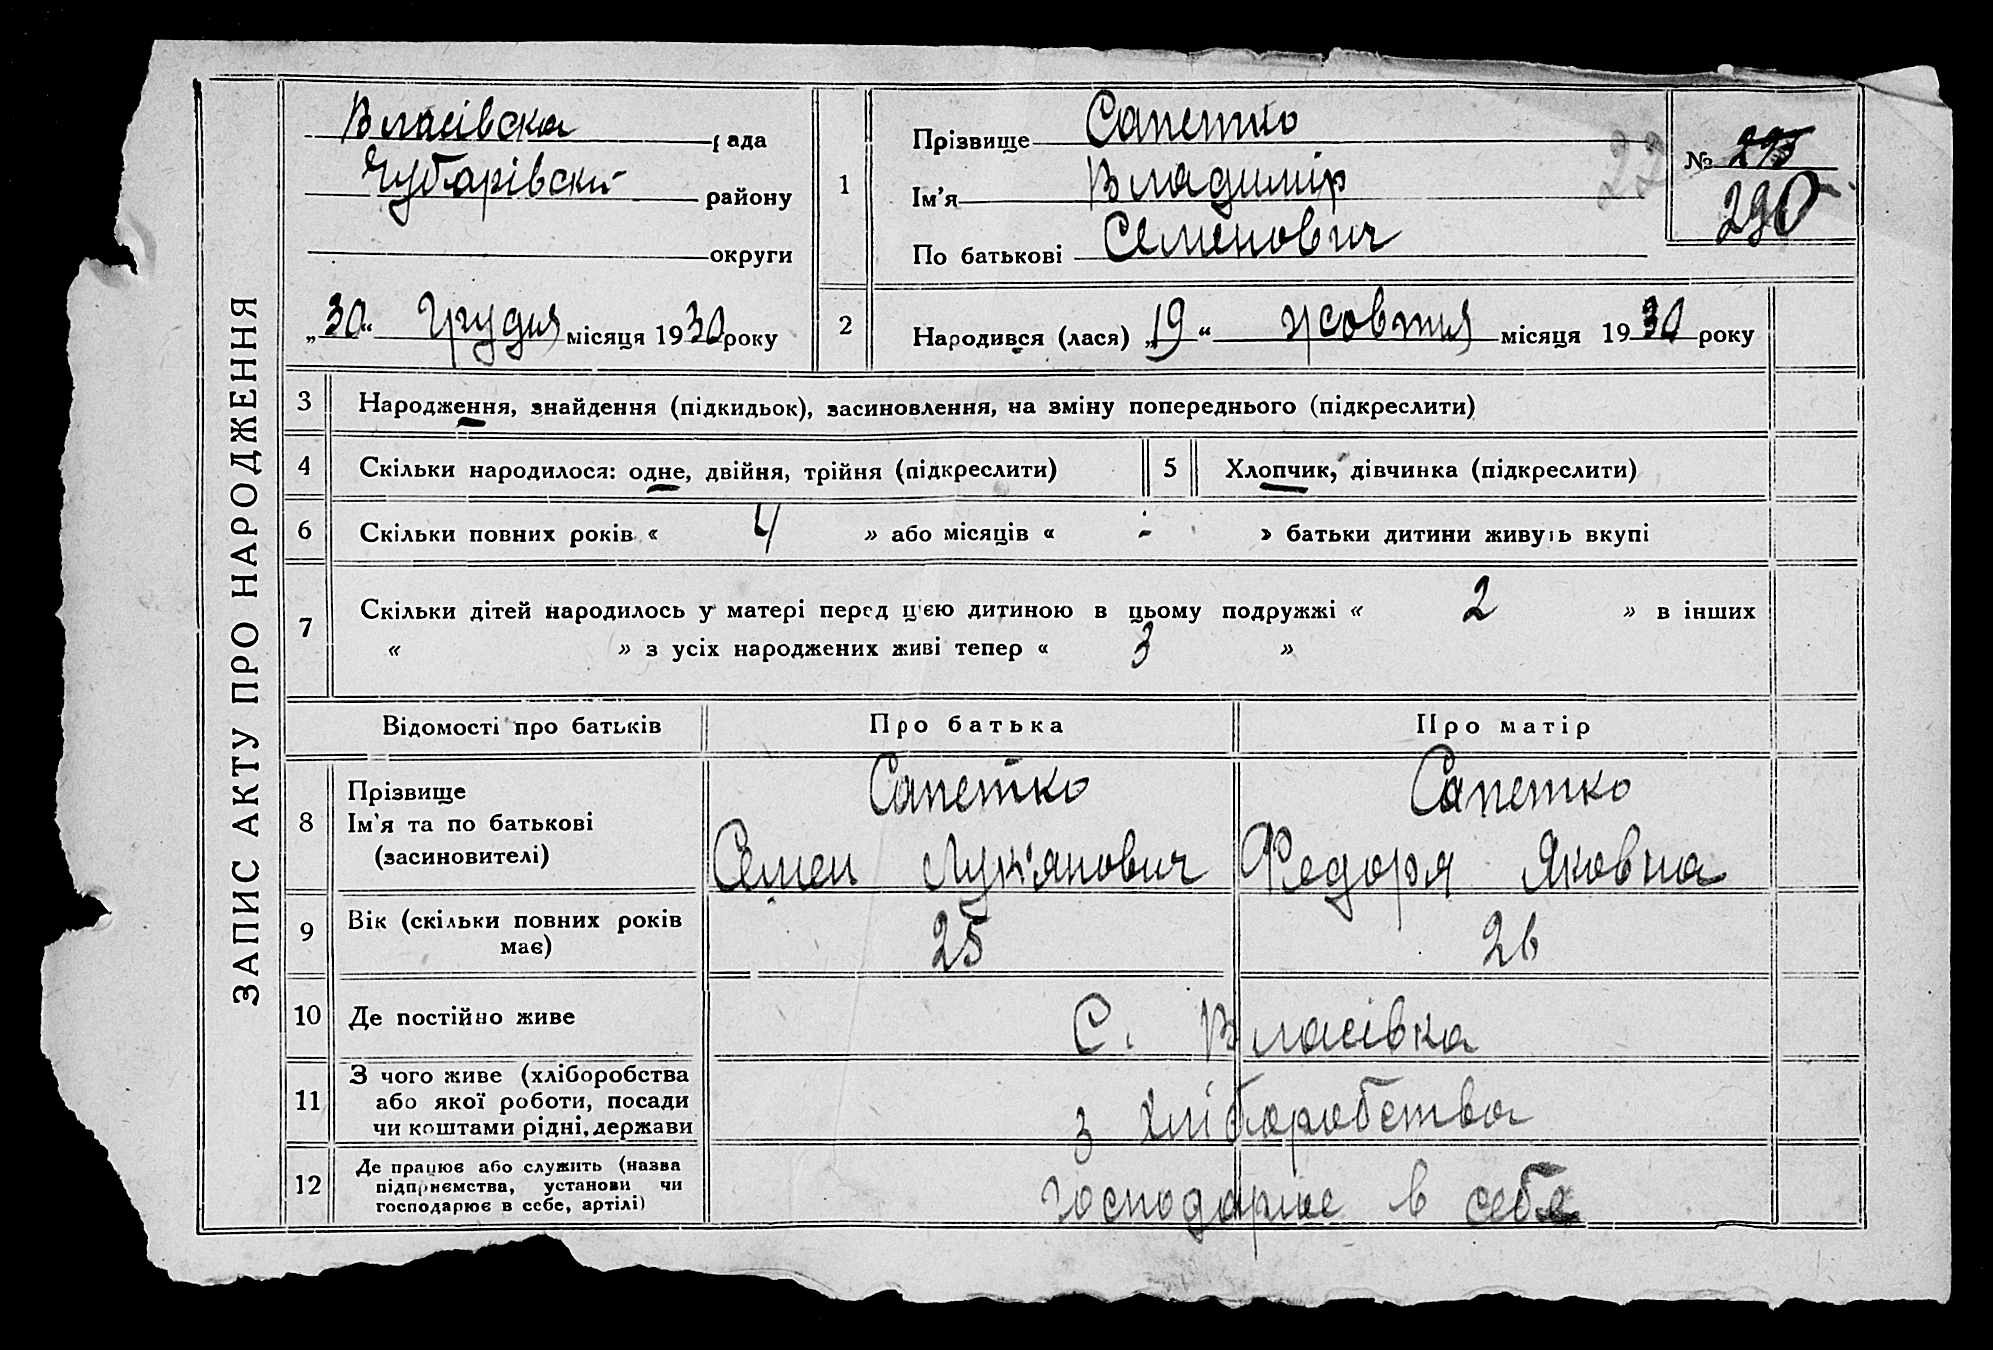 ЗАПИС АКТУ ПРО НАРОДЖЕННЯ
Власівска рада
Чубарівский району
округи
„30“ Грудня місяця 1930 року
1
Прізвище Сапетко
Ім'я Владимір
По батькові Семенович
22
№ 295
290
2
Народився (лася) „19“ жовтня місяця 1930 року
3 Народження, знайдення (підкидьок), засиновлення, на зміну попереднього (підкреслити)
4 Скільки народилося: одне, двійня, трійня (підкреслити) 5 Хлопчик, дівчинка (підкреслити)
6 Скільки повних років « 4 » або місяців « - » батьки дитини живуть вкупі
7 Скільки дітей народилось у матері перед цією дитиною в цьому подружжі « 2 » в інших
« » з усіх народжених живі тепер « 3 »
Відомості про батьків Про батька Про матір
8 Прізвище
Ім'я та по батькові
(засиновителі)
Сапетко
Семен Лук'янович
Сапетко
Федоря Яковна
9 Вік (скільки повних років
має)
25 26
10 Де постійно живе С. Власівка
11 З чого живе (хліборобства
або якої роботи, посади
чи коштами рідні, держави
з хліборобства
12 Де працює або служить (назва
підприємства, установи чи
господарює в себе, артілі)
господарює в себе